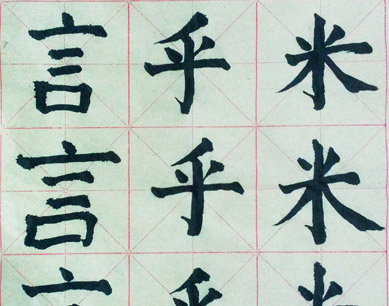 言乎米
言乎米